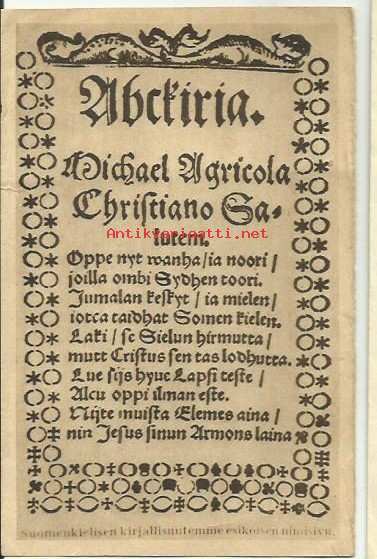 Abckiria.
Michael Agricola
Christiano Sa-
lutem.
Antikvariaatti.net
Oppe nyt wanha/ia noori/
joilla ombi Sydhen toori.
Jumalan keskyt/ia mielen/
iotca taidhat Somen kielen.
Laki/se Sielun hirmutta/
mutt Cristus sen tas lodhutta.
Lue sijs hyue Lapsi teste/
Alcu oppi ilman este.
Nijte muista Elemes aina/
nin Jesus sinun Armons laina
Suomenkielisen kirjallisuutemme esikoisen nimisivu.